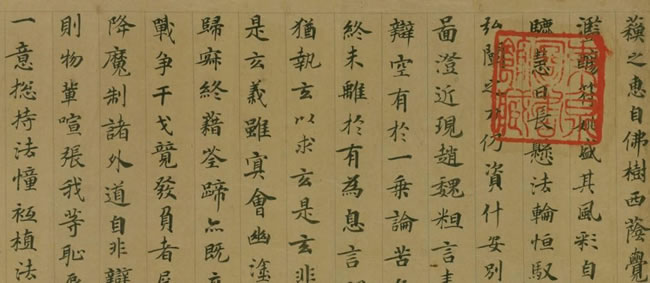 之惠自佛樹西蔭覺
濫觴盛其風彩自
聽慧日長懸法輪恒馭
弘闡之方仍資什安別
啚澄近現趙魏粗言
辯空有於一乘論苦
終未離於有為息言
猶執玄以求玄是玄非
是玄義雖冥會幽塗
歸寂終藉筌蹄亦既
戰争干戈競發負者
降魔制諸外道自非辯
則物輩喧張我等恥
一意惣持法憧祗植法